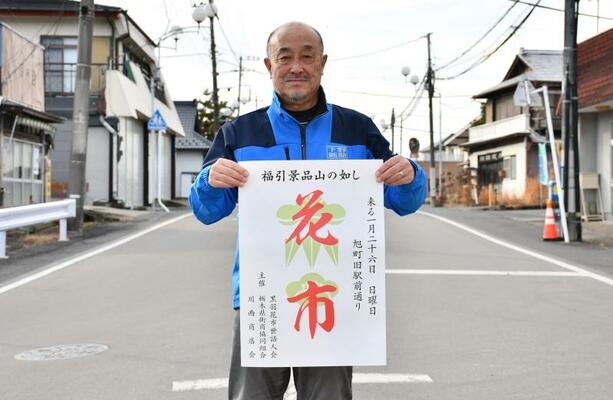 福引景品山の如し
花市
来る一月二十六日　日曜日
旭町旧駅前通り
主催
黒羽花市世話人会
栃木県街商協同組合
川西商店会